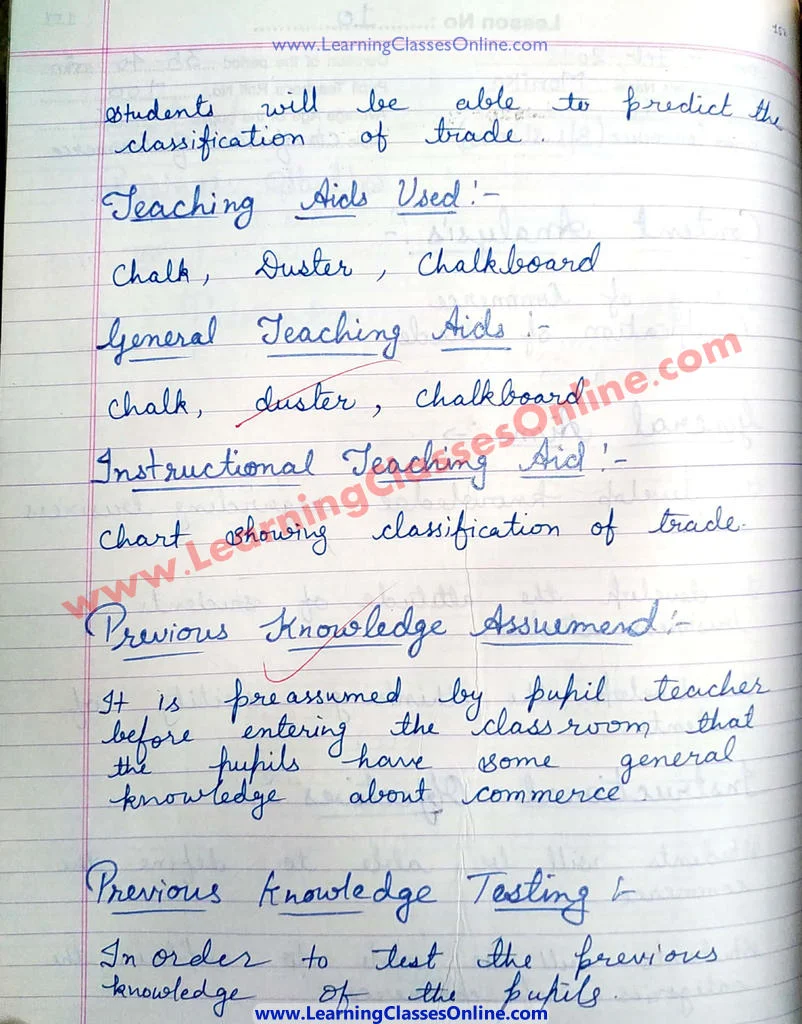 www.LearningClassesOnline.com
students will be able to predict the
classification of trade.
Teaching Aids Used :-
Chalk, Duster, Chalkboard
General Teaching Aids :-
chalk, duster, chalkboard
Instructional Teaching Aid :-
chart showing classification of trade.
www.LearningClassesOnline.com
Previous Knowledge Assuemend :-
It is preassumed by pupil teacher
before entering the classroom that
the pupils have some general
knowledge about commerce.
Previous Knowledge Testing :-
In order to test the previous
knowledge of the pupils.
www.LearningClassesOnline.com